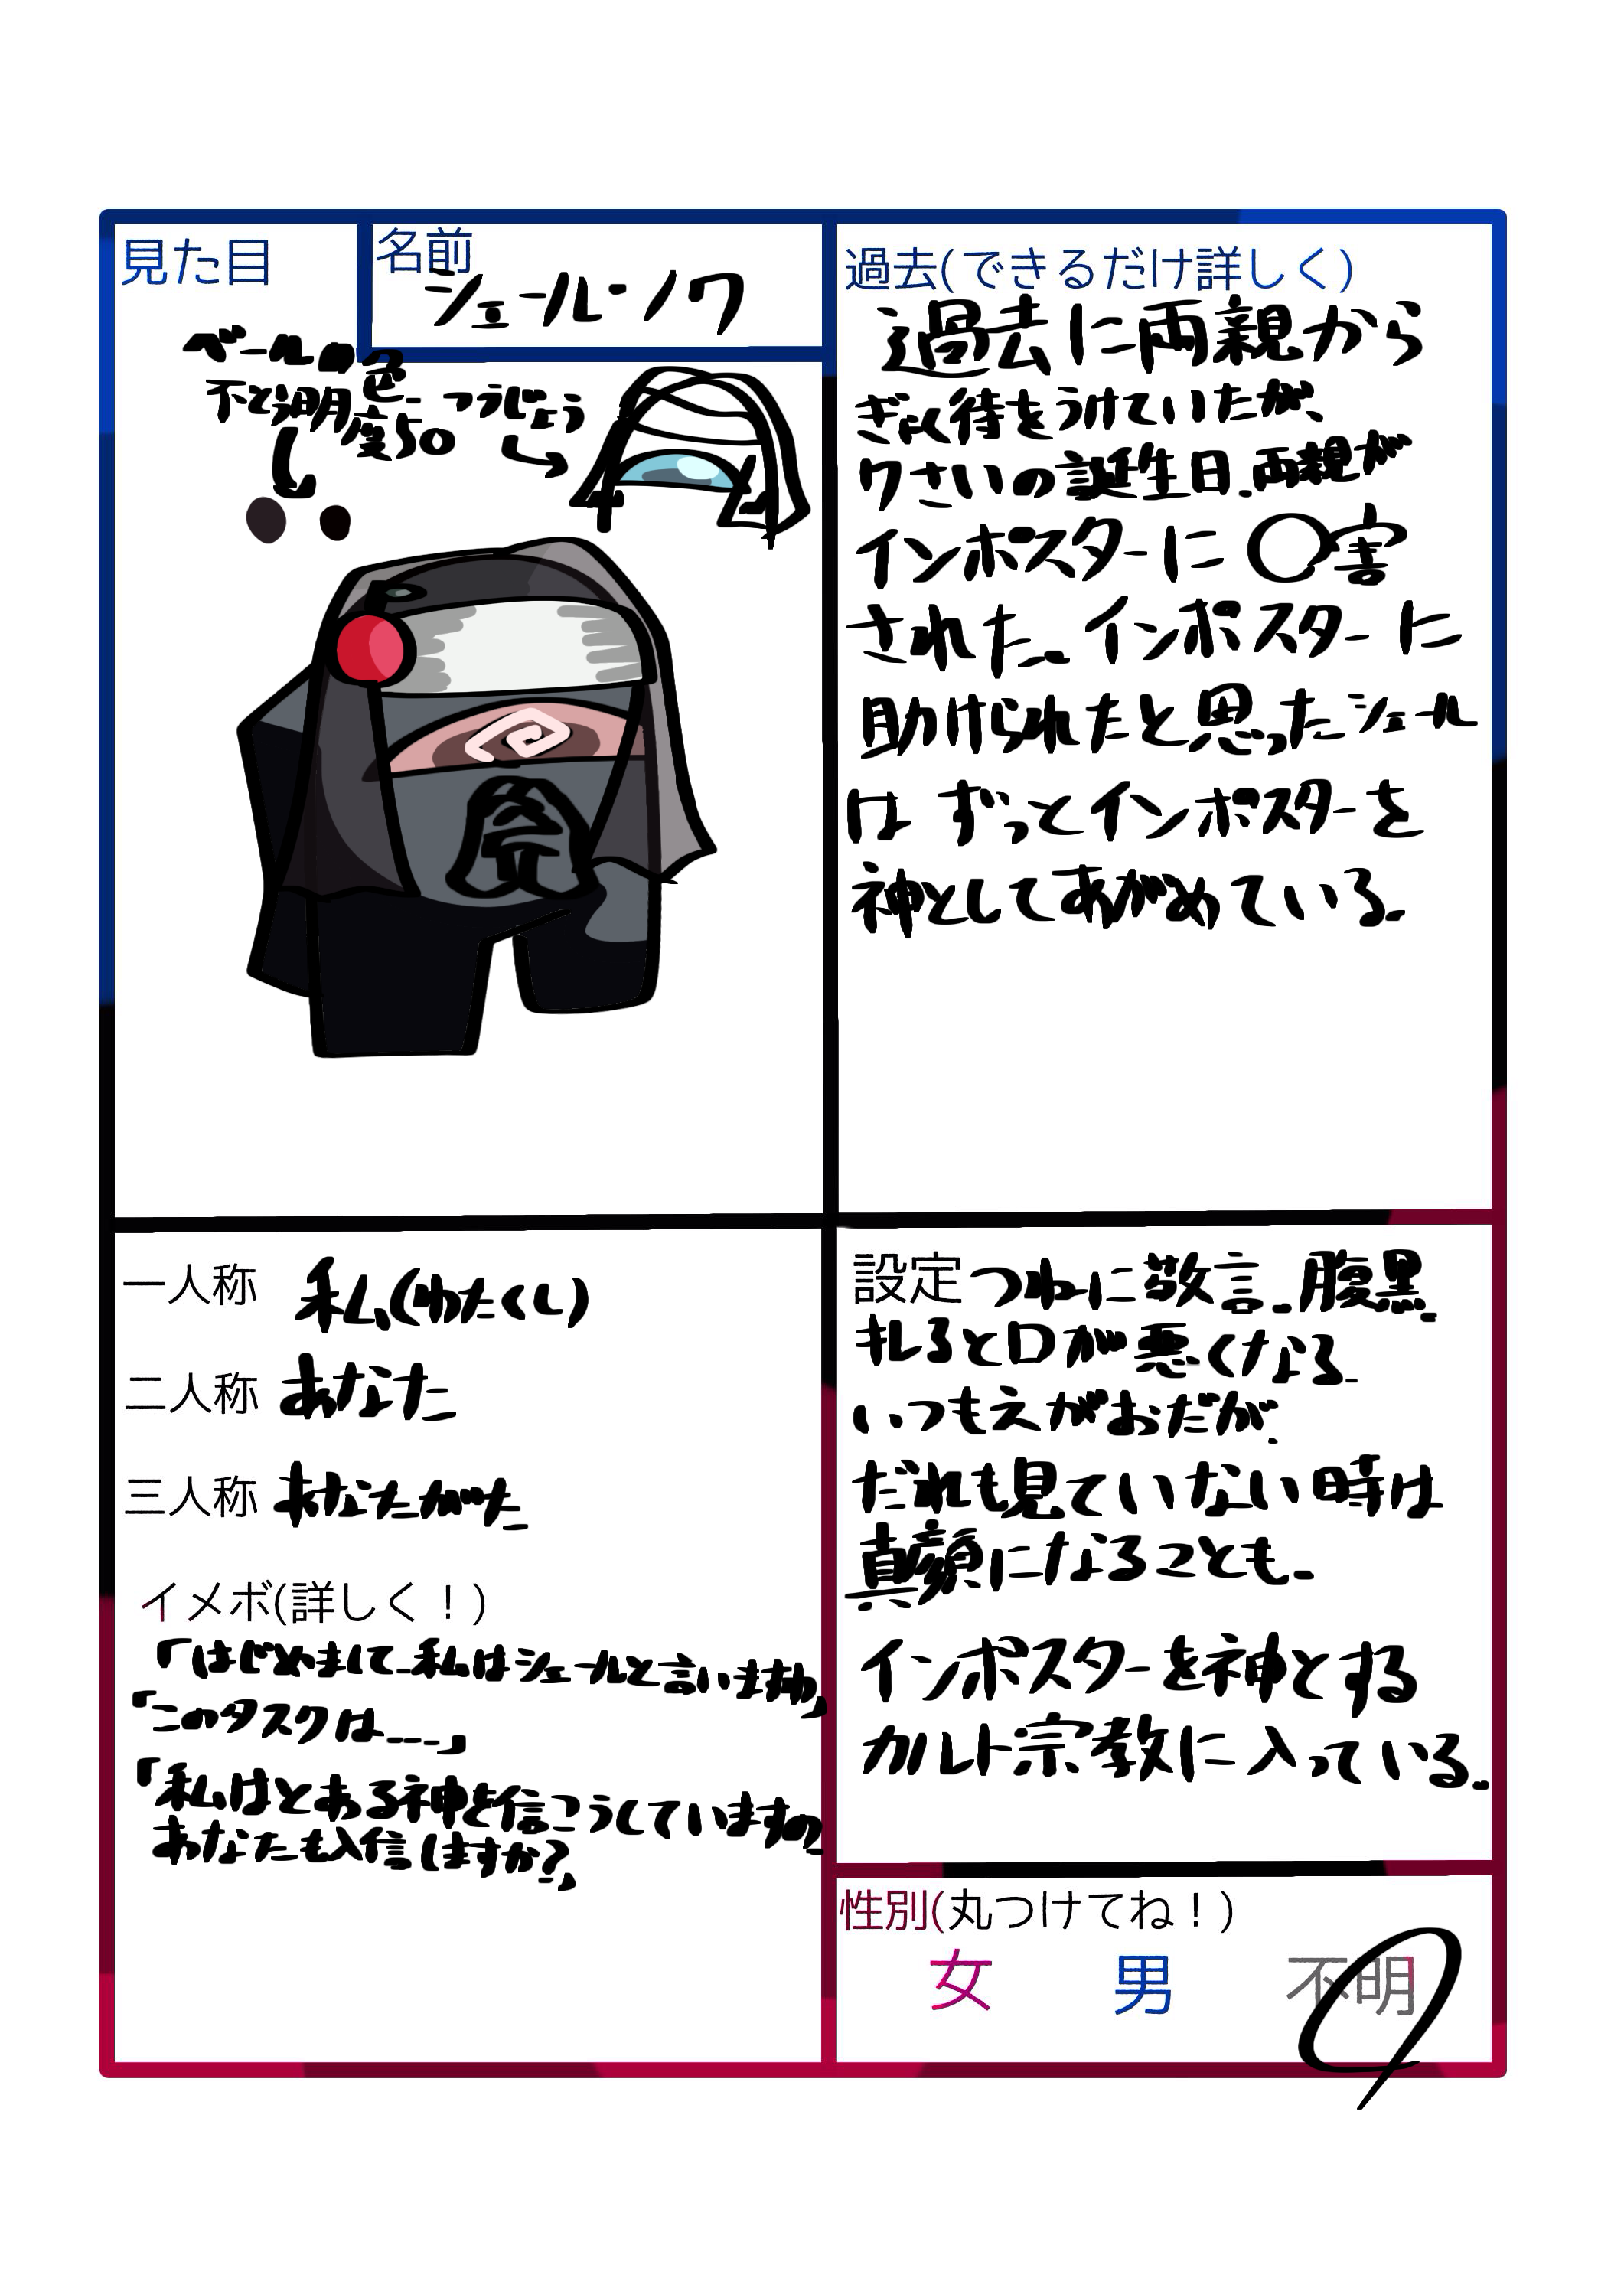 見た目
名前
シェール・ノワ
ベールの色
不とう明度50
つうじょう
祭
過去(できるだけ詳しく)
過去に両親から
ぎゃく待をうけていたが、
9さいの誕生日、両親が
インポスターに〇害
された。インポスターに
助けられたと思ったシェール
はずっとインポスターを
神としてあがめている。
一人称 私(わたくし)
二人称 あなた
三人称 あなたがた
イメボ(詳しく!)
「はじめまして、私はシェールと言いますわ」
「このタスクは……」
「私はとある神を信こうしていますの
あなたも入信しますか?」
設定 つねに敬言。腹黒。
キレると口が悪くなる。
いつもえがおだが、
だれも見ていない時は
真顔になることも。
インポスターを神とする
カルト宗教に入っている。
性別(丸つけてね!)
女 男 不明